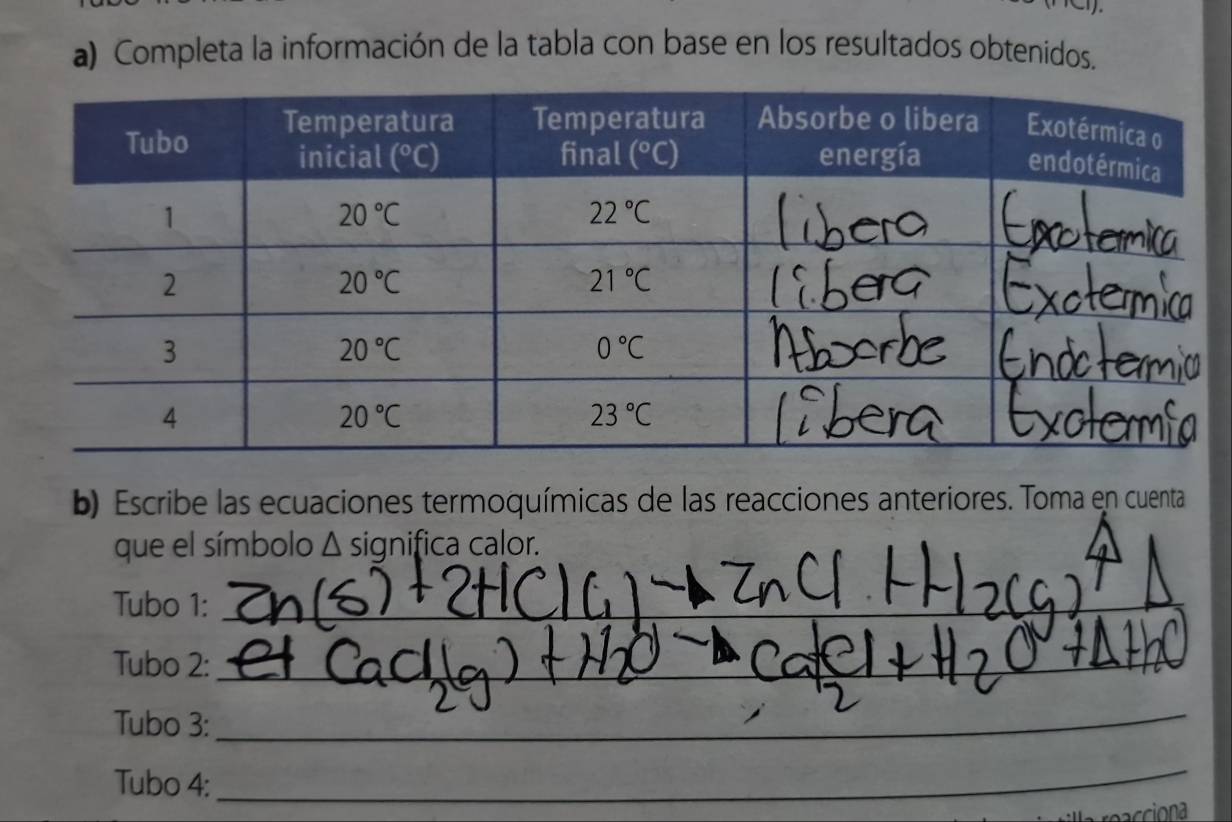 a) Completa la información de la tabla con base en los resultados obtenidos.
Tubo Temperatura inicial (°C) Temperatura final (°C) Absorbe o libera energía Exotérmica o endotérmica
1 20 °C 22 °C libera Exotermica
2 20 °C 21 °C libera Exotermica
3 20 °C 0 °C Absorbe Endotermica
4 20 °C 23 °C libera Exotermia
b) Escribe las ecuaciones termoquímicas de las reacciones anteriores. Toma en cuenta
que el símbolo Δ significa calor.
Tubo 1: Zn(s) + 2HCl( ) → ZnCl + H2(g)↑ Δ
Tubo 2: CaCl2(g) + H2O → Ca Cl2 + H2O + Δ H2O
Tubo 3:
Tubo 4:
reacciona